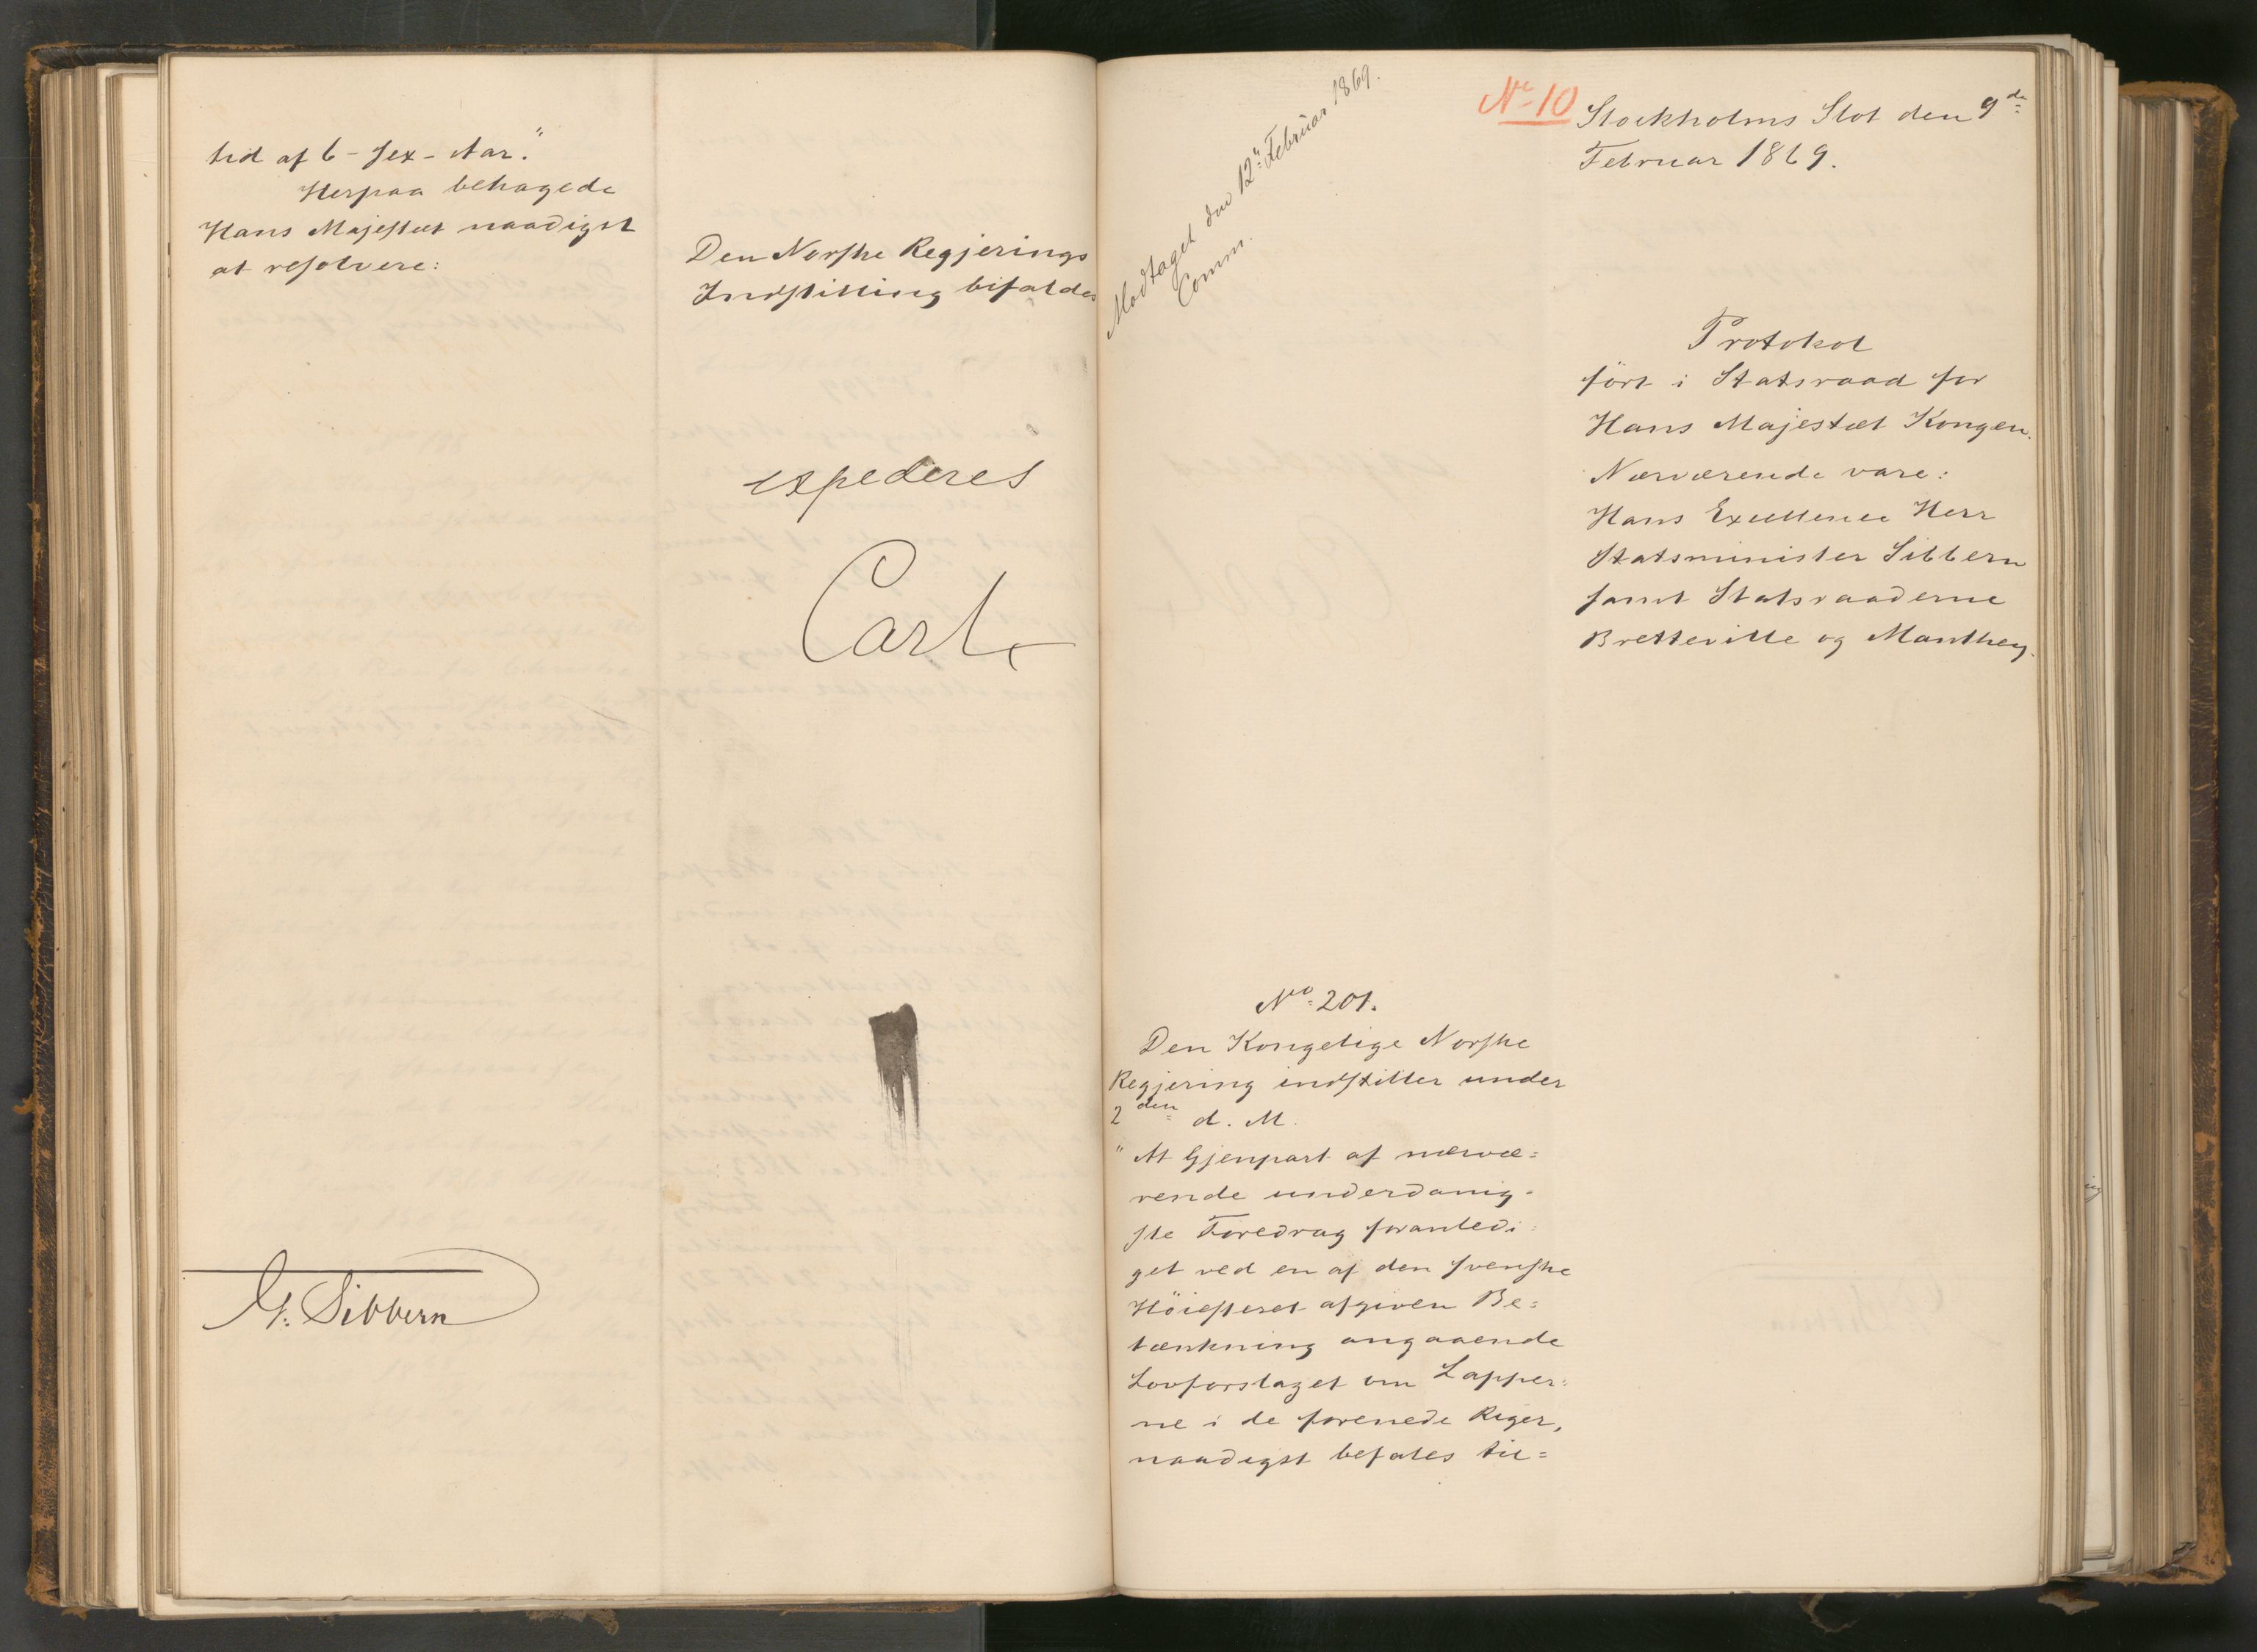 tid af 6 - sex - Aar."
Herpaa behagede
Hans Majestæt naadigst
at resolvere:
Den Norske Regjerings
Indstilling bifaldes
expederes
Carl
G. Sibbern
Modtaget den 12te Februar 1869.
Comm.
No 10
Stockholms Slot den 9de
Februar 1869.
Protokol
ført i Statsraad for
Hans Majestæt Kongen.
Nærværende vare:
Hans Excellence Herr
Statsminister Sibbern
samt Statsraaderne
Bretteville og Manthey.
No 201.
Den Kongelige Norske
Regjering indstiller under
2den d. M.
"At Gjenpart af nærvæ=
rende underdanig=
ste Foredrag foranledi=
get ved en af den svenske
Höiesteret afgiven Be=
tænkning angaaende
Lovforslaget om Lapper=
ne i de forenede Riger,
naadigst befales til=